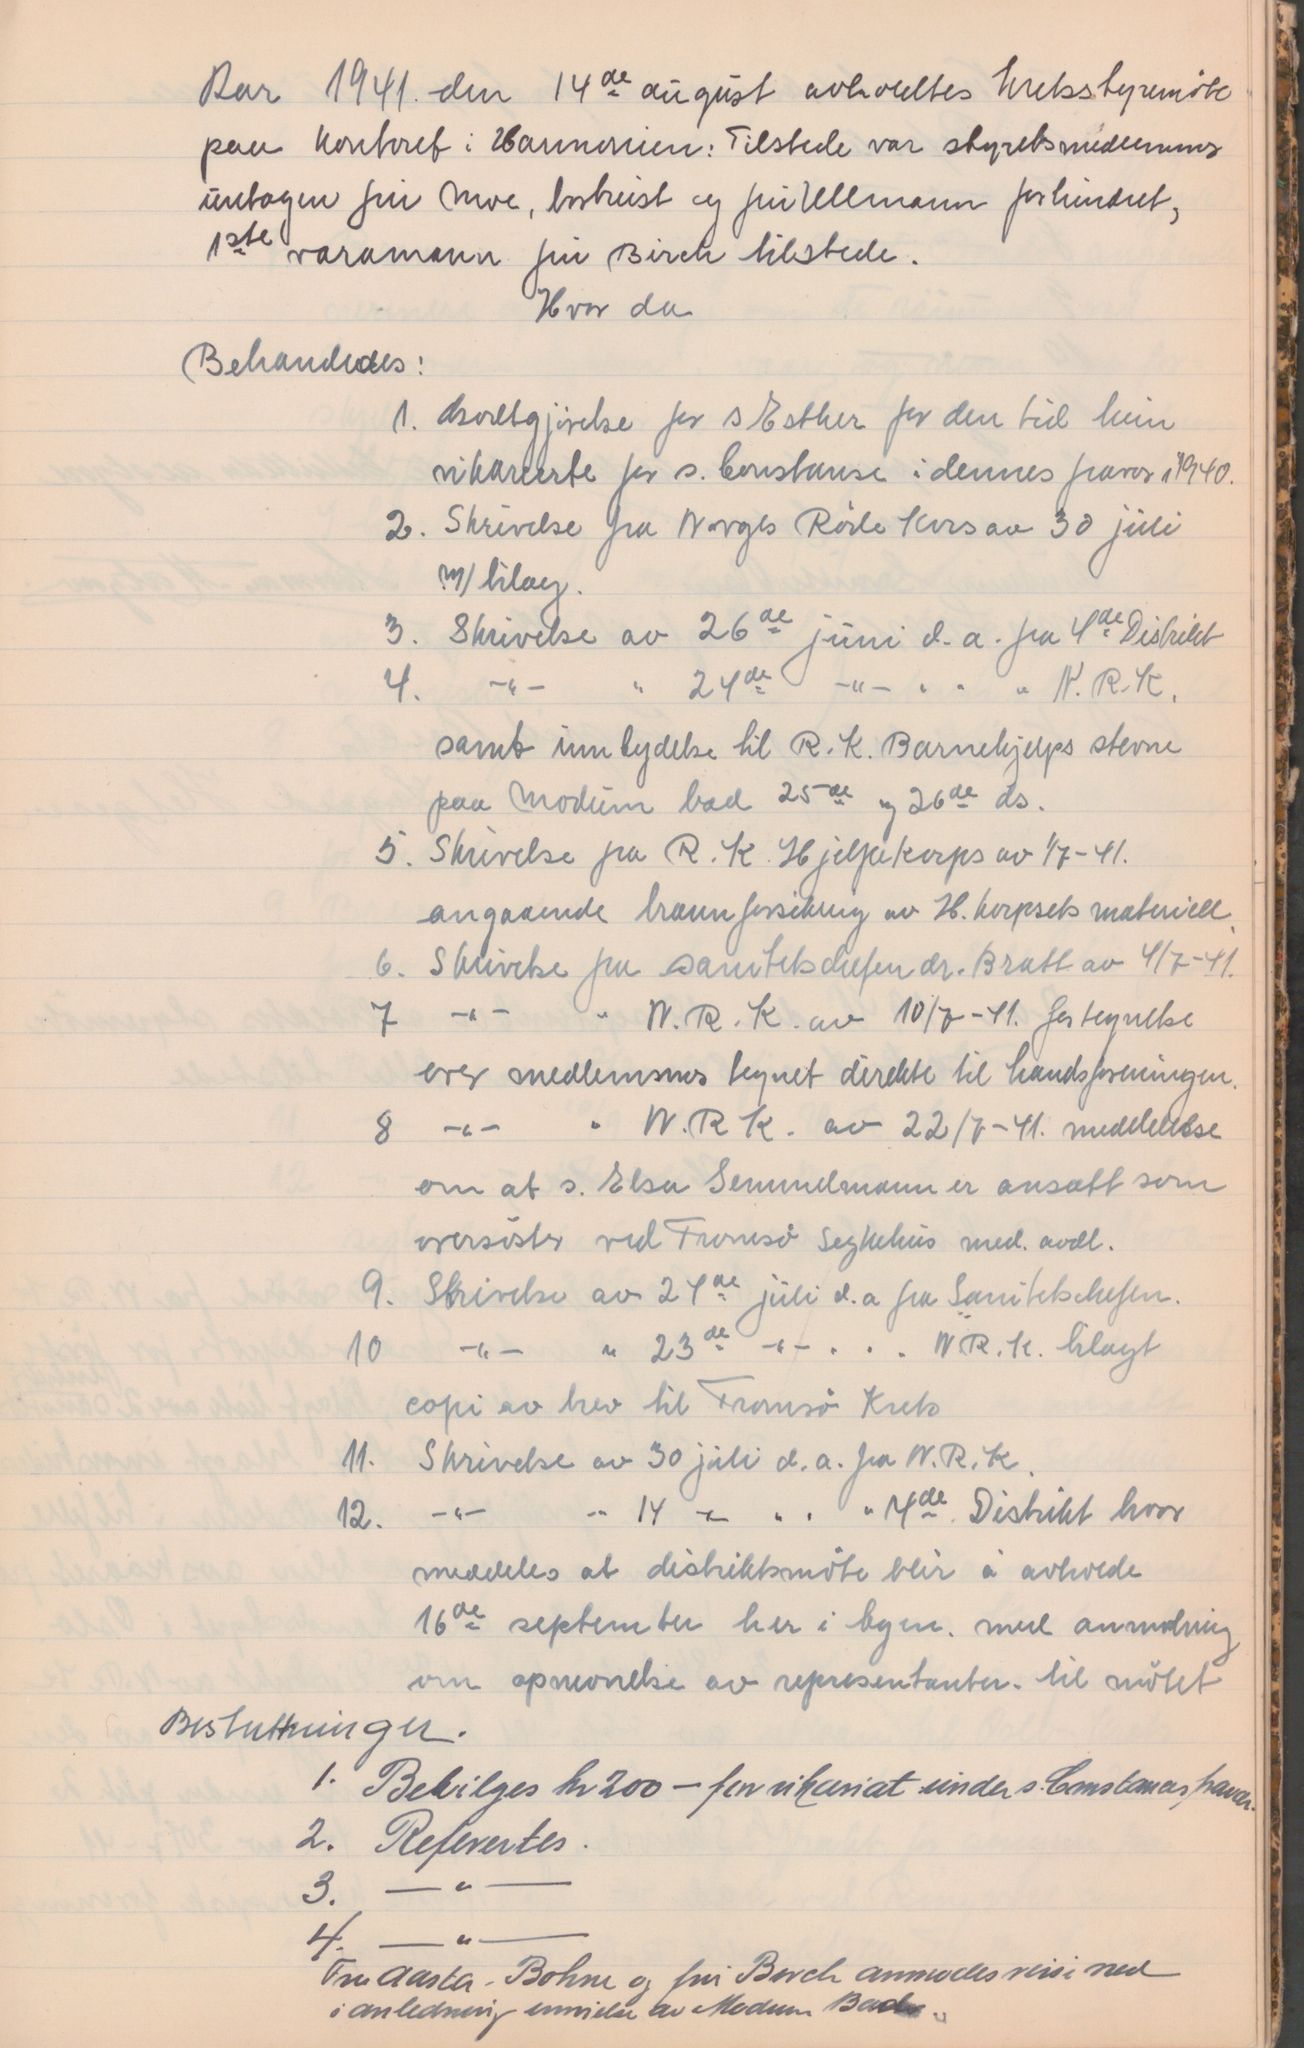 Aar 1941. den 14de august avholdtes kretsstyremöte
paa kontoret i Harmonien: Tilstede var styretsmedlemmer
untagen fru Moe, bortreist og fru Ullmann forhindret,
1ste varamann fru Birch tilstede.
Hvor da
Behandledes:
1. Godtgjörelse for s Esther for den tid hun
vikarierte for s. Constanse i dennes fravær i 1940.
2. Skrivelse fra Norges Röde Kors av 30 juli
m/ bilag.
3. Skrivelse av 26de juni d. a. fra 4de Distrikt
4. -"- " 24de -"- " " " N. R. K.
samt innbydelse til R. K. Barnehjelps stevne
paa Modum bad 25de og 26de ds.
5. Skrivelse fra R. K. Hjelpekorps av 1/7-41.
angaaende brannforsikring av H. korpsets materiell.
6. Skrivelse fra sanitetschefen dr. Bratt av 4/7-41.
7 -"- " N. R. K. av 10/7-41. fortegnelse
over medlemmer tegnet direkte til landsforeningen.
8 -"- " N. R K. av 22/7-41. meddelelse
om at s. Elsa Semmelmann er ansatt som
oversöster ved Tromsö Sykehus med. avdl.
9. Skrivelse av 24de juli d. a fra Sanitetschefen.
10 -"- " 23de -"- " " " N R. K. bilagt
copi av brev til Tromsö Krets
11. Skrivelse av 30 juli d. a. fra N. R. K.
12. -"- " 14 -"- " " " 4de Distrikt hvor
meddeles at distriktsmöte blir å avholde
16de september her i byen. med anmodning
om opnevnelse av representanter. til mötet
Beslutninger.
1. Bevilges kr 200 – for vikariat under s. Constanses fravær.
2. Refereertes.
3. — " —
4. — " —
Fru Aasta Bohne og fru Birch anmodes reise ned
i anledning innvielse av Modum Bad.